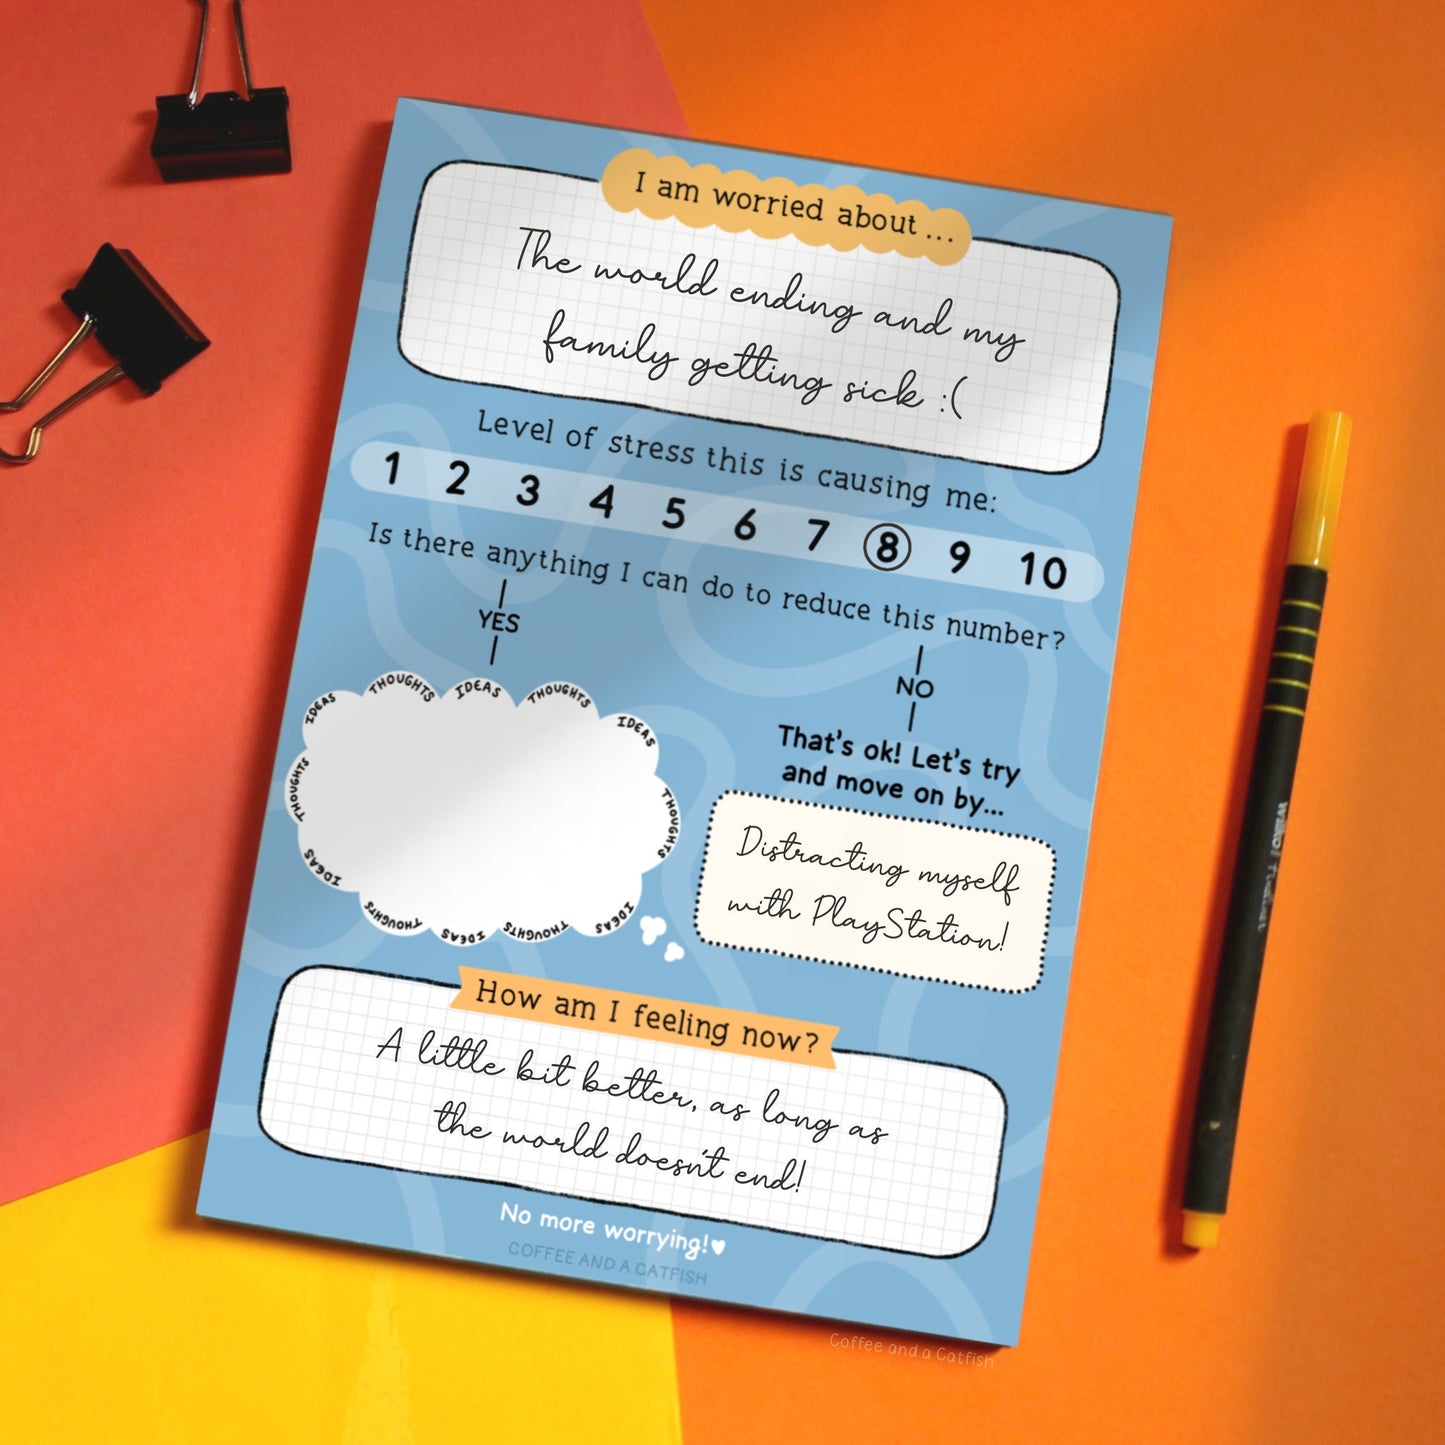 I am worried about...
The world ending and my
family getting sick :(
Level of stress this is causing me:
1 2 3 4 5 6 7 8 9 10
Is there anything I can do to reduce this number?
YES
NO
IDEAS THOUGHTS IDEAS THOUGHTS IDEAS THOUGHTS IDEAS THOUGHTS IDEAS THOUGHTS IDEAS THOUGHTS
That's ok! Let's try
and move on by...
Distracting myself
with PlayStation!
How am I feeling now?
A little bit better, as long as
the world doesn't end!
No more worrying!♥
COFFEE AND A CATFISH
Coffee and a Catfish